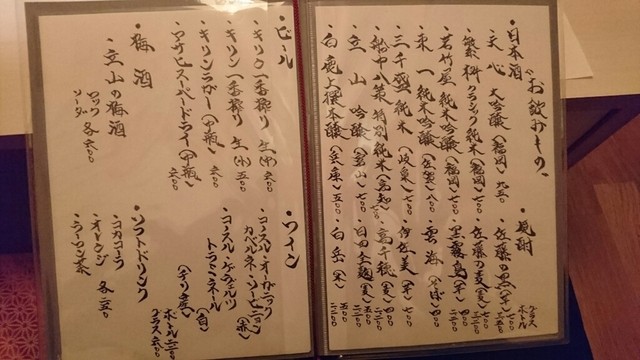 お飲みもの
・日本酒
・天心 大吟醸(福岡)九五〇
・繁桝クラシック純米(福岡)七〇〇
・若竹屋純米吟醸(福岡)七〇〇
・東一純米吟醸(佐賀)八〇〇
・三千盛純米(岐阜)七〇〇
・船中八策特別純米(高知)七〇〇
・立山 吟醸(富山)七〇〇
・白鹿上撰本醸(兵庫)五〇〇
・焼酎
グラス
ボトル
・佐藤の黒(芋)
・佐藤の麦(麦)
・黒霧島(芋)
・伊佐美(芋)
・雲海(そば)
・高千穂(麦)
・白岳(米)
・ビール
・キリン一番搾り 生(中)六〇〇
・キリン一番搾り 生(小)五〇〇
・キリンラガー(中瓶)六〇〇
・アサヒスーパードライ(中瓶)六〇〇
・梅酒
・立山の梅酒
ロック
ソーダ 各六〇〇
・ワイン
・コノスル・オーガニック
カベルネ・ソーヴィニヨン(赤)
・コノスル・ゲヴュルツ
トラミネール(白)
(チリ産)
ボトル
グラス 六〇〇
・ソフトドリンク
・コカコーラ
・オレンジ
・ウーロン茶